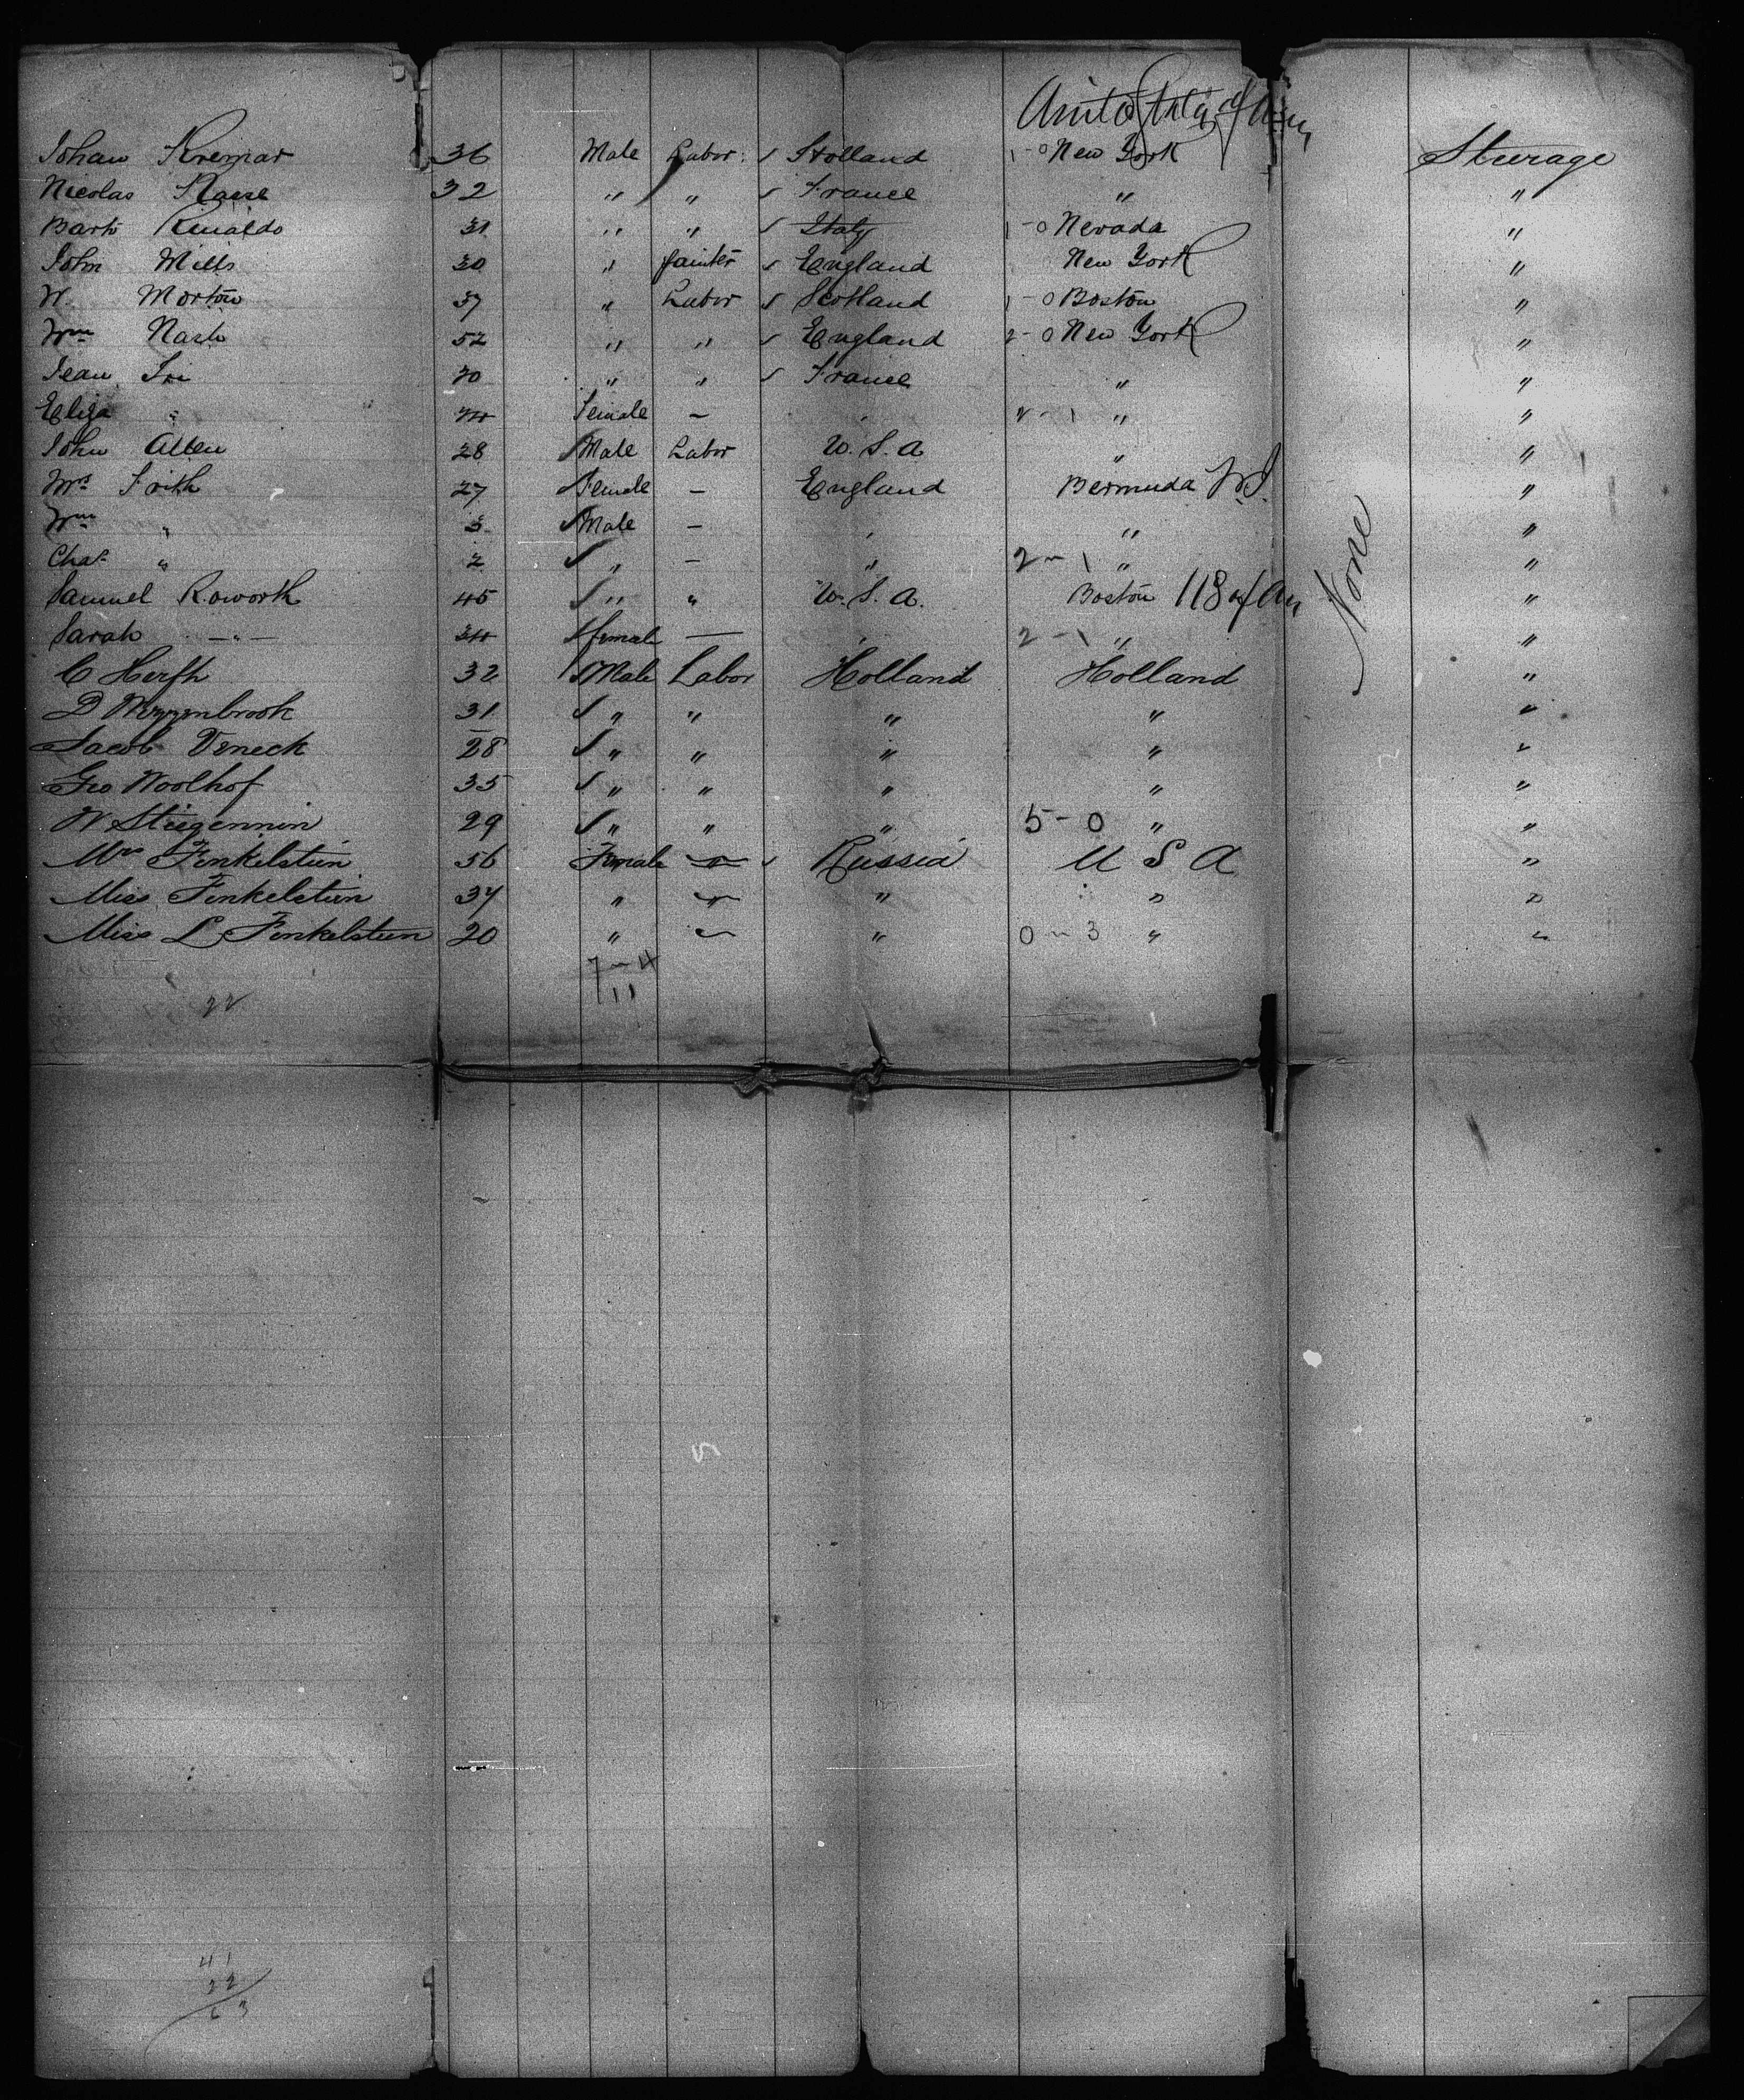 United States of Am
Johan Kremar 36 Male Labor Holland 1-0 New York Steerage
Nicolas 32 " " France " "
Bart Rinaldo 31 " " Italy 1-0 Nevada "
John Mills 30 " Painter England New York "
W. Morton 37 " Labor Scotland 1-0 Boston "
Wm Nash 52 " " England 2-0 New York "
Jean 30 " " France " "
Eliza " Female - " 2-1 " "
John Allen 28 Male Labor U.S.A " "
Mrs Frith 27 Female - England Bermuda W.I. "
Wm " 3 Male - " " "
Chas " 2 " - " 2-1 " "
Samuel Roworth 45 " " U.S.A. Boston 118 of Am "
Sarah -"- female — " 2-1 " "
None
C Herfh 32 Male Labor Holland Holland "
D 31 " " " " "
Jacob Veneck 28 " " " " "
Geo Woolhof 35 " " " " "
W Stiegennin 29 " " " 5-0 " "
Mrs Finkelstein 56 Female " Russia U S A "
Miss Finkelstein 34 " " " " "
Miss L Finkelstein 20 " " " 0-3 " "
7-4
11
22
41
22
63